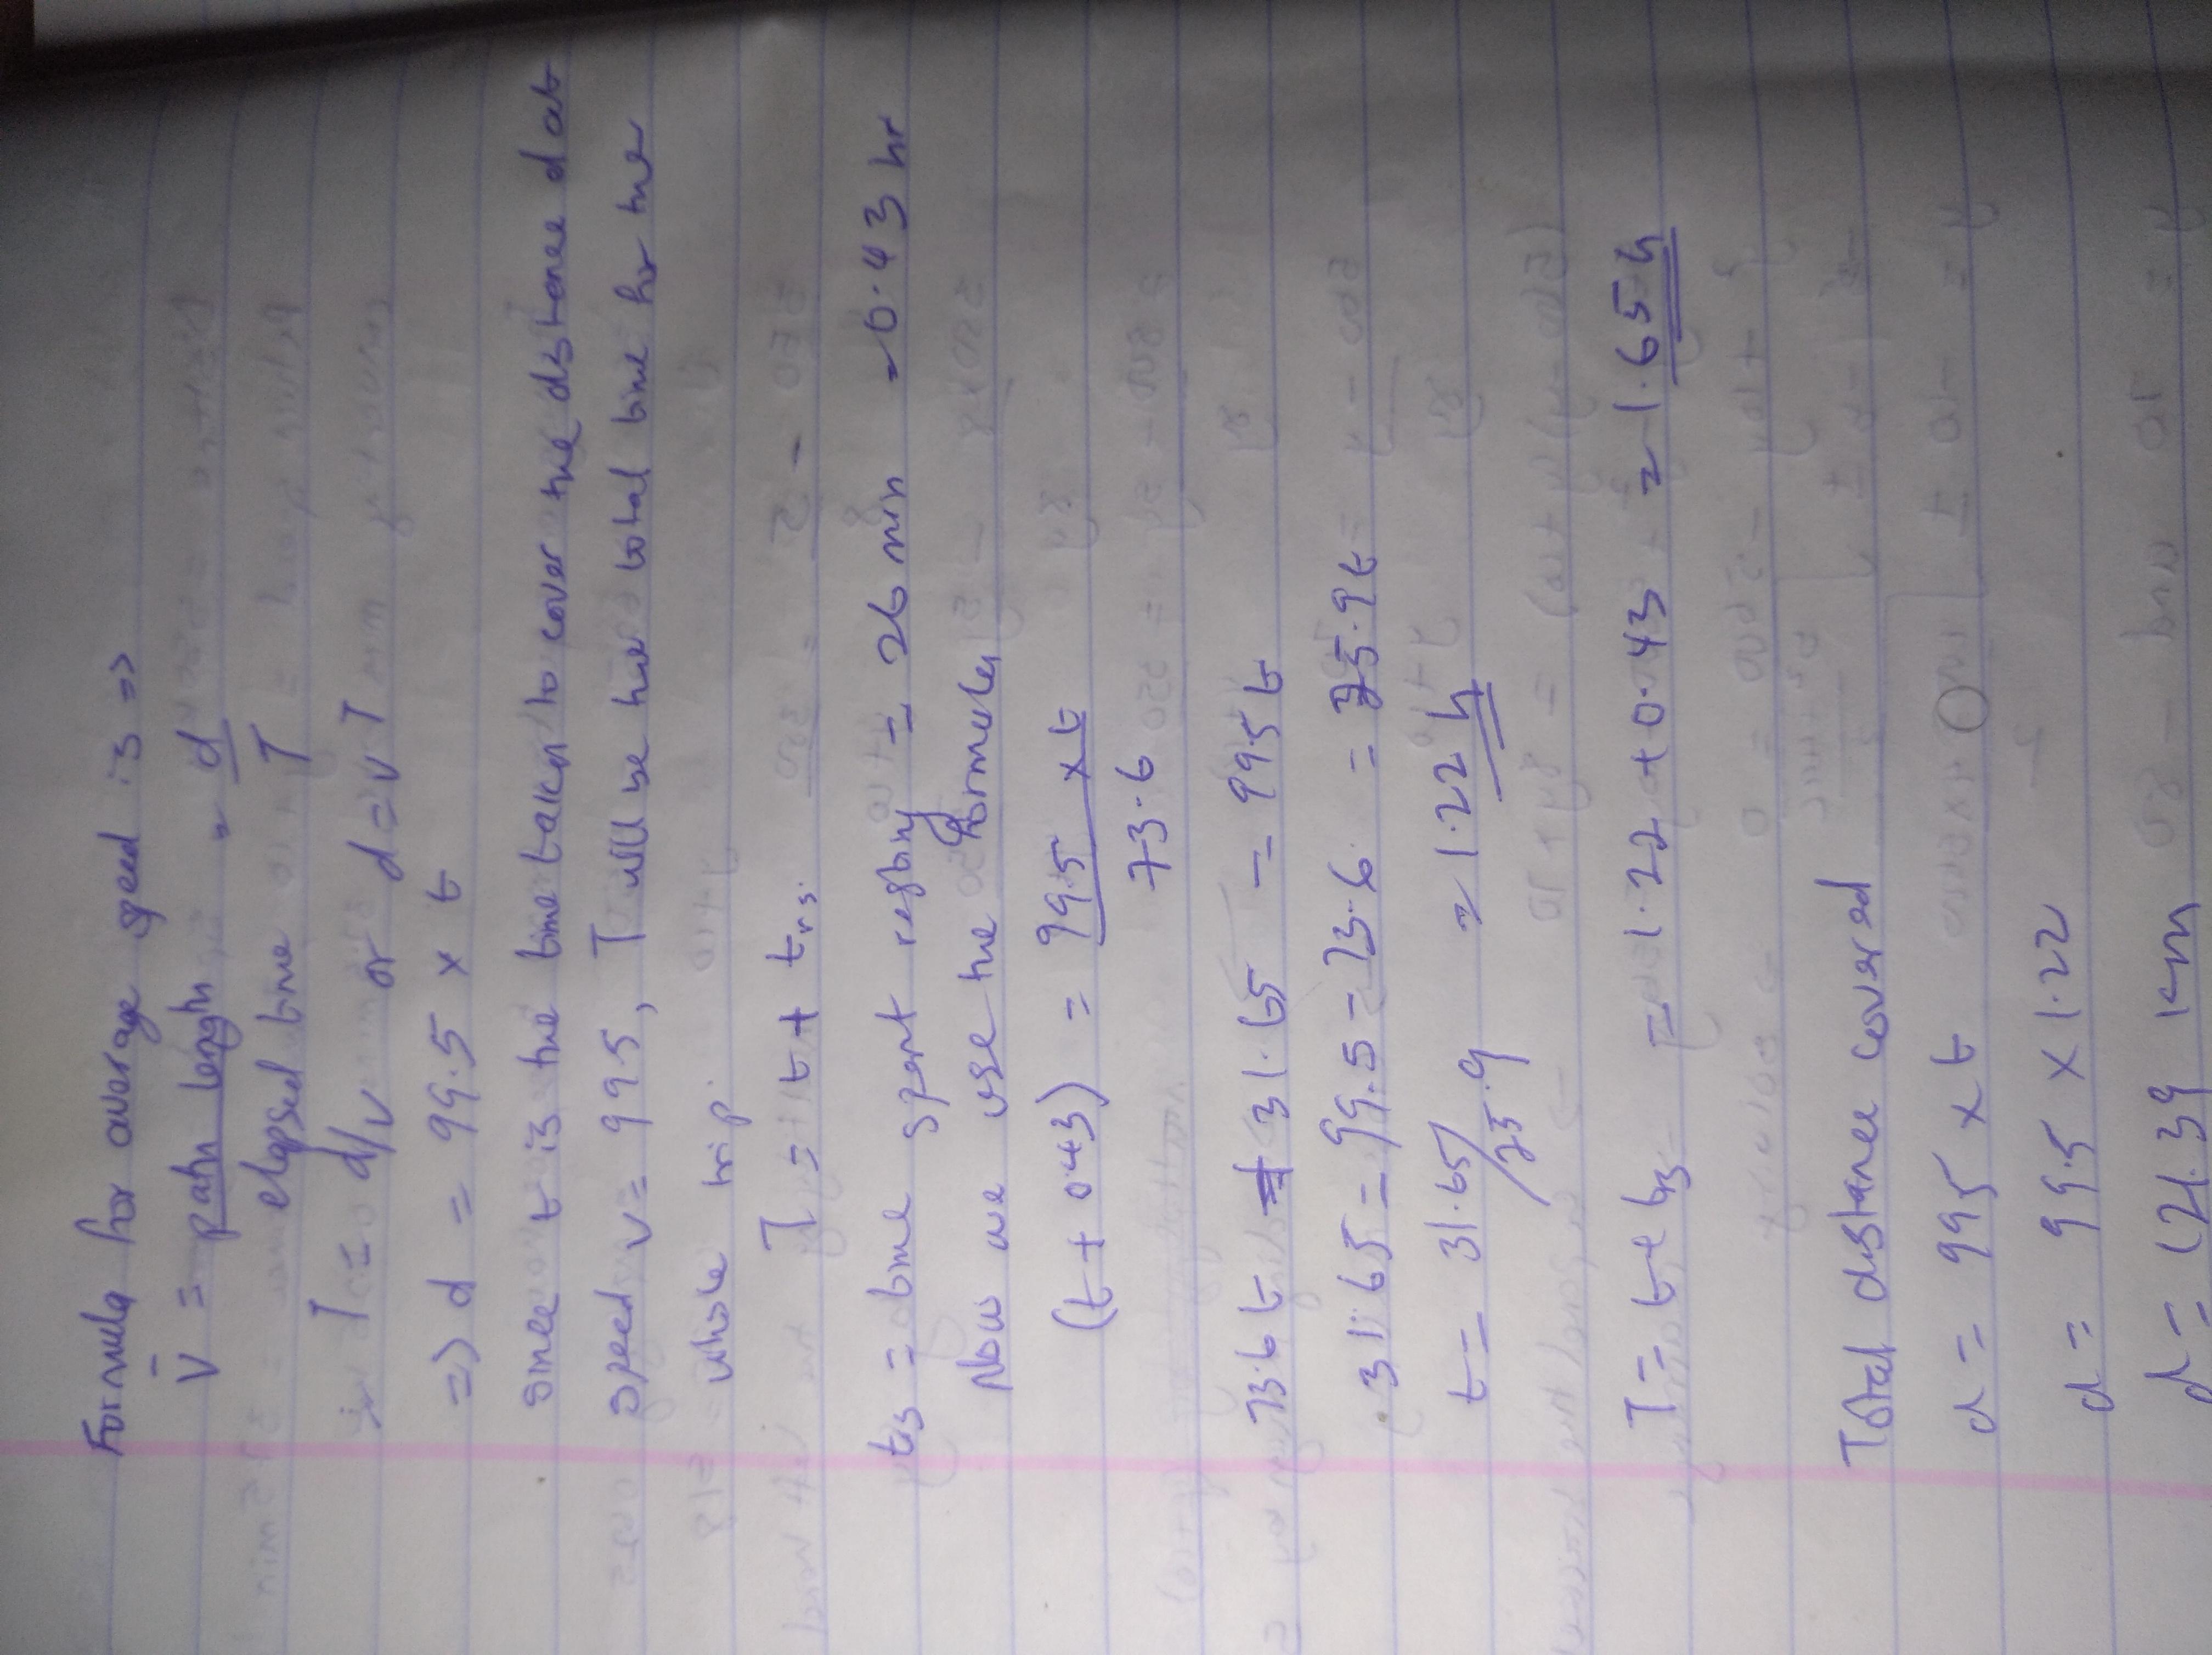 Formula for average speed is =>
V̄ = path length = d
elapsed time T
T = d/v or d = vT
=> d = 99.5 x t
since t is the time taken to cover the distance d at
speed v = 99.5, T will be the total time for the
whole trip.
T = t + trs.
trs = time spent resting = 26 min = 0.43 hr
Now we use the formula
(t + 0.43) = 99.5 x t
73.6
73.6 t + 31.65 = 99.5 t
31.65 = 99.5 - 73.6 = 25.9t
t = 31.65/25.9 = 1.22 h
T = t + trs = 1.22 + 0.43 = 1.65 h
Total distance covered
d = 99.5 x t
d = 99.5 x 1.22
d = 121.39 km